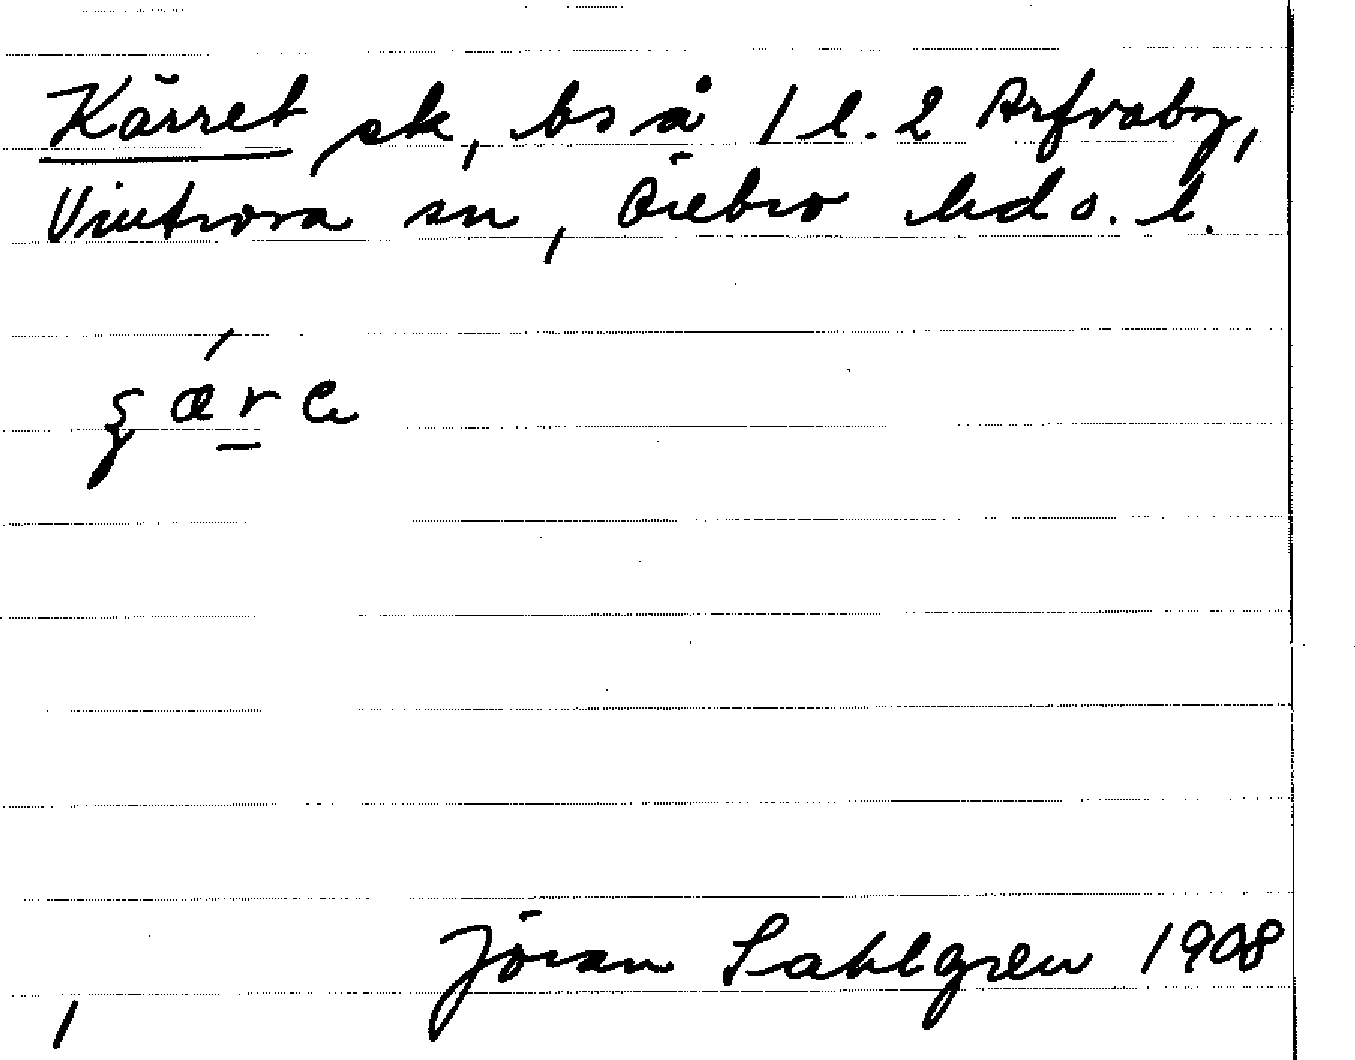 Kärret sk, bs å 1 l. 2 Arfvaby,
Vintrosa sn, Örebro hd o. l.
Jöran Sahlgren 1908